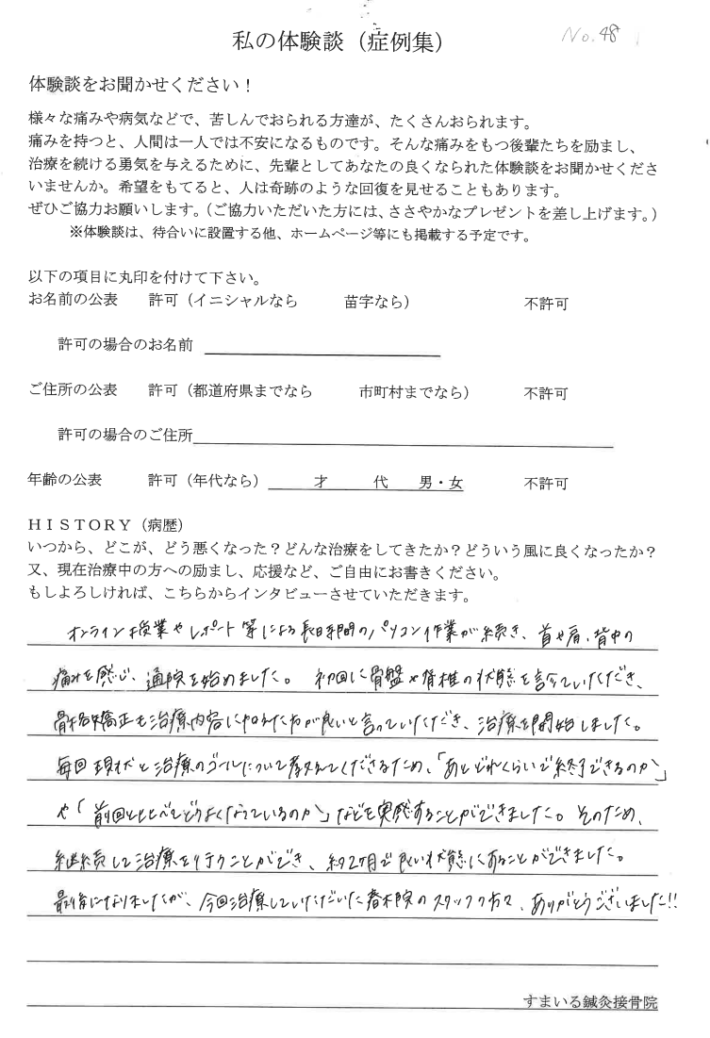 私の体験談（症例集）
No.48
体験談をお聞かせください！
様々な痛みや病気などで、苦しんでおられる方達が、たくさんおられます。
痛みを持つと、人間は一人では不安になるものです。そんな痛みをもつ後輩たちを励まし、
治療を続ける勇気を与えるために、先輩としてあなたの良くなられた体験談をお聞かせくださ
いませんか。希望をもてると、人は奇跡のような回復を見せることもあります。
ぜひご協力お願いします。（ご協力いただいた方には、ささやかなプレゼントを差し上げます。）
※体験談は、待合いに設置する他、ホームページ等にも掲載する予定です。
以下の項目に丸印を付けて下さい。
お名前の公表　許可（イニシャルなら　苗字なら）　不許可
許可の場合のお名前
ご住所の公表　許可（都道府県までなら　市町村までなら）　不許可
許可の場合のご住所
年齢の公表　許可（年代なら）　才　代　男・女　不許可
ＨＩＳＴＯＲＹ（病歴）
いつから、どこが、どう悪くなった？どんな治療をしてきたか？どういう風に良くなったか？
又、現在治療中の方への励まし、応援など、ご自由にお書きください。
もしよろしければ、こちらからインタビューさせていただきます。
オンライン授業やレポート等による長時間のパソコン作業が続き、首や肩、背中の
痛みを感じ、通院を始めました。初回に骨盤や脊椎の状態を診ていただき、
骨格矯正も治療内容に加えた方が良いと言っていただき、治療を開始しました。
毎回現状と治療のゴールについて教えてくださるため、「あとどれくらいで終了できるのか」
や「前回と比べてどうよくなっているのか」などを実感することができました。そのため、
継続して治療を行うことができ、約2ヶ月で良い状態にあることができました。
最後になりましたが、今回治療していただいた春木院のスタッフの方々、ありがとうございました!!
すまいる鍼灸接骨院